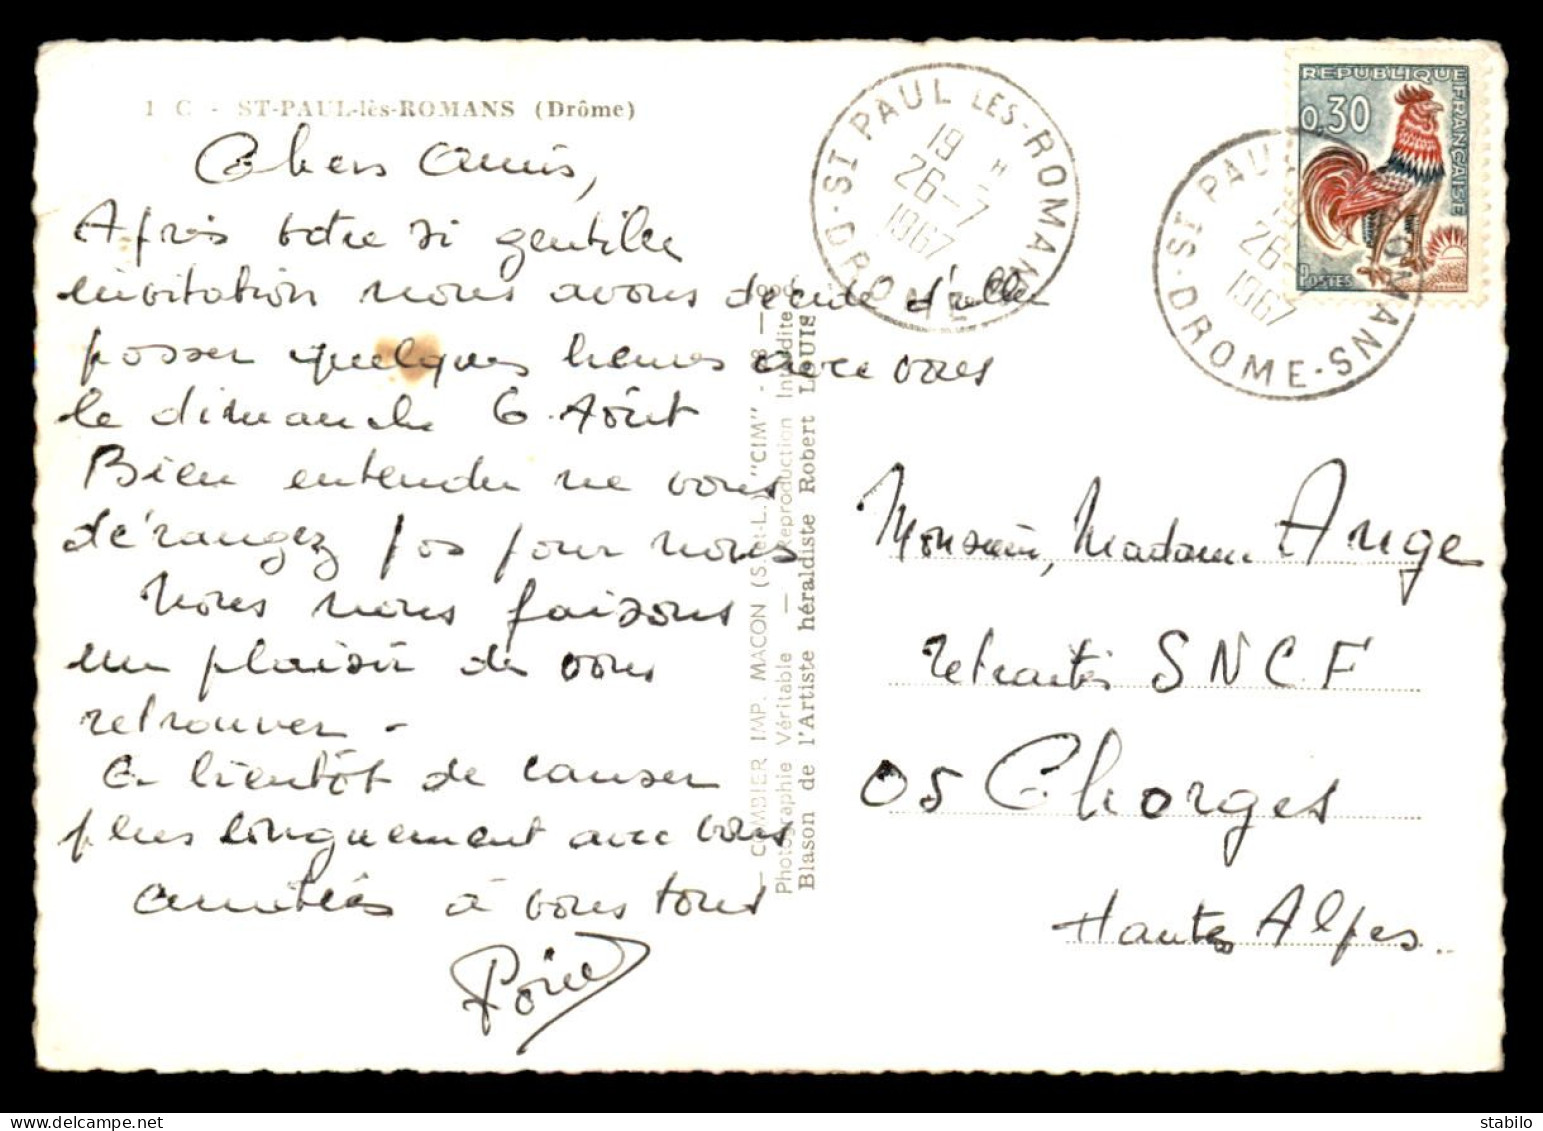 1 C - ST-PAUL-lès-ROMANS (Drôme)
Chers Amis,
Après votre si gentille
invitation nous avons décidé d'aller
passer quelques heures avec vous
le dimanche 6 Août
Bien entendu ne vous
dérangez pas pour nous
Nous nous faisons
un plaisir de vous
retrouver -
A bientôt de causer
plus longuement avec vous
amitiés à vous tous
— COMBIER IMP. MACON (S.-et-L.) "CIM" -
Photographie Véritable — Reproduction Interdite
Blason de l'Artiste héraldiste Robert LOUIS
ST PAUL LES-ROMANS
19 H
26-7
1967
DROME
REPUBLIQUE FRANÇAISE
0,30
POSTES
ST PAUL ROMANS
26
1967
DROME
Monsieur, Madame Ange
retraités SNCF
05 Chorges
Hautes Alpes
delcampe.net
stabilo